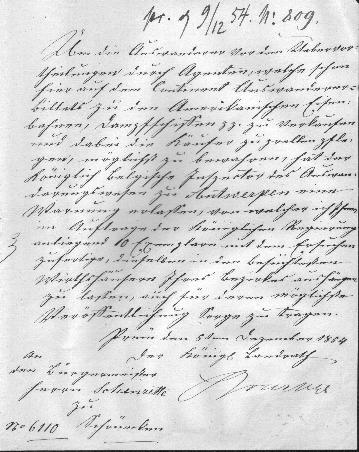 pr. d 9/12 54. No 809.
Um die Auswanderer vor den Uebervor-
theilungen durch Agenten, welche schon
hier auf dem Continent Auswanderer-
billets zu den Amerikanischen Eisen-
bahnen, Dampfschiffen pp. zu verkaufen
und dabei die Käufer zu prellen pfle-
gen, möglichst zu bewahren, hat der
Königlich belgische Inspector des Auswan-
derungswesen zu Antwerpen eine
Warnung erlassen, von welcher ich Ihnen
im Auftrage der Königlichen Regierung
anliegend 10 Exemplare mit dem Ersuchen
zufertige, dieselben in den besuchtesten
Wirthshäusern Ihres Bezirkes aushängen
zu lassen, auch für deren möglichste
Veröffentlichung Sorge zu tragen.
Prüm den 5ten Dezember 1854
Der Königl. Landrath
An
den Bürgermeister
Herrn
zu
No 6110 Schönecken